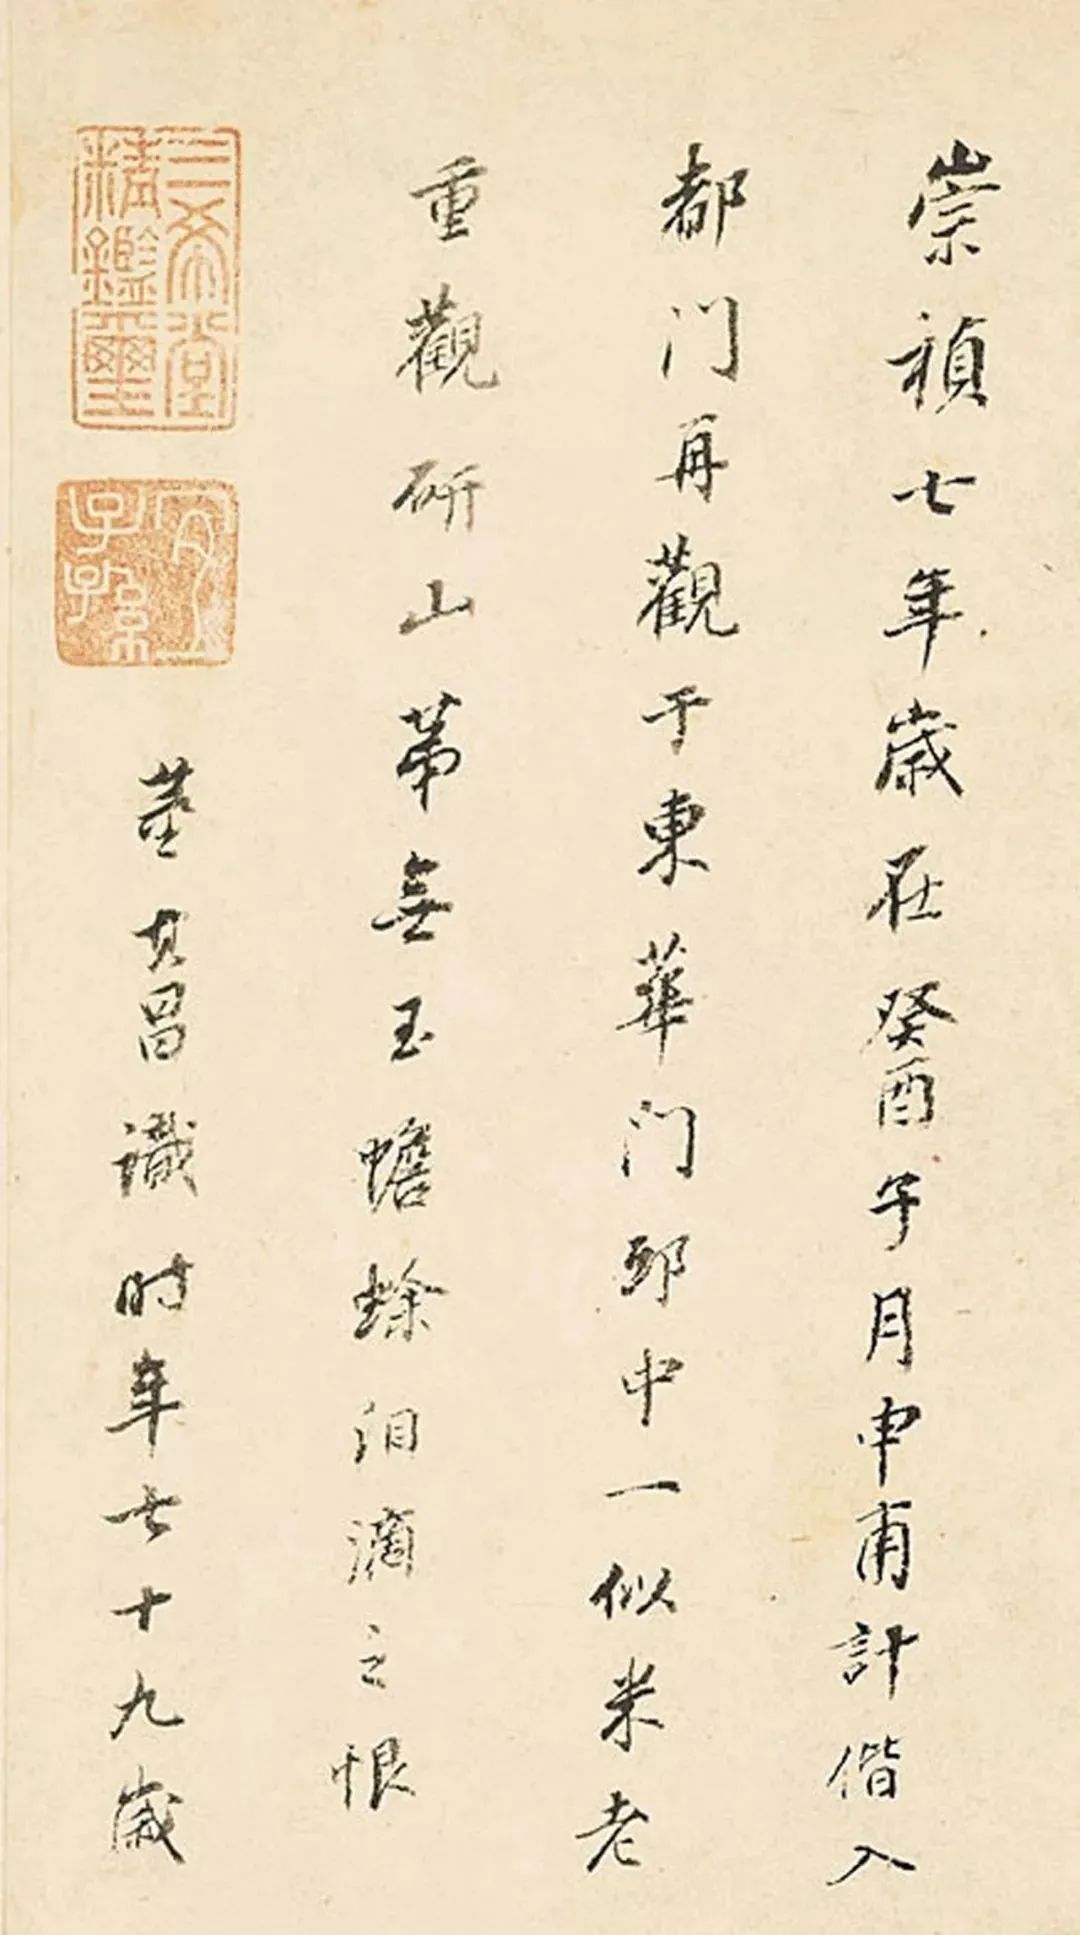 崇禎七年歲在癸酉子月申甫計偕入
都門再觀于東華門邸中一似米老
重觀研山第無玉蟾蜍泪滴之恨
三希堂精鑑璽
宜子孫
董其昌識时年七十九歲